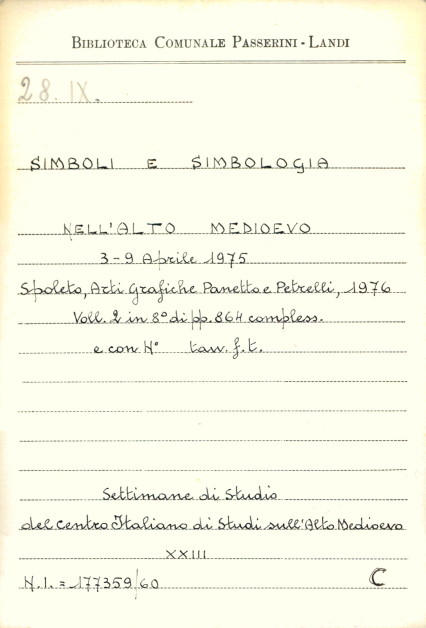 BIBLIOTECA COMUNALE PASSERINI - LANDI
28. IX.
SIMBOLI E SIMBOLOGIA
NELL'ALTO MEDIOEVO
3-9 Aprile 1975
Spoleto, Arti Grafiche Panetto e Petrelli, 1976
Voll. 2 in 8° di pp. 864 compless.
e con N° tavv. f. t.
Settimane di Studio
del Centro Italiano di Studi sull'Alto Medioevo
XXIII
N.I. = 177359/60 C